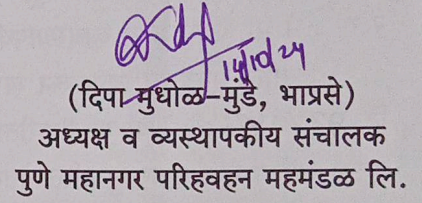 14/10/24
(दिपा मुधोळ-मुंडे, भाप्रसे)
अध्यक्ष व व्यस्थापकीय संचालक
पुणे महानगर परिहवहन महमंडळ लि.